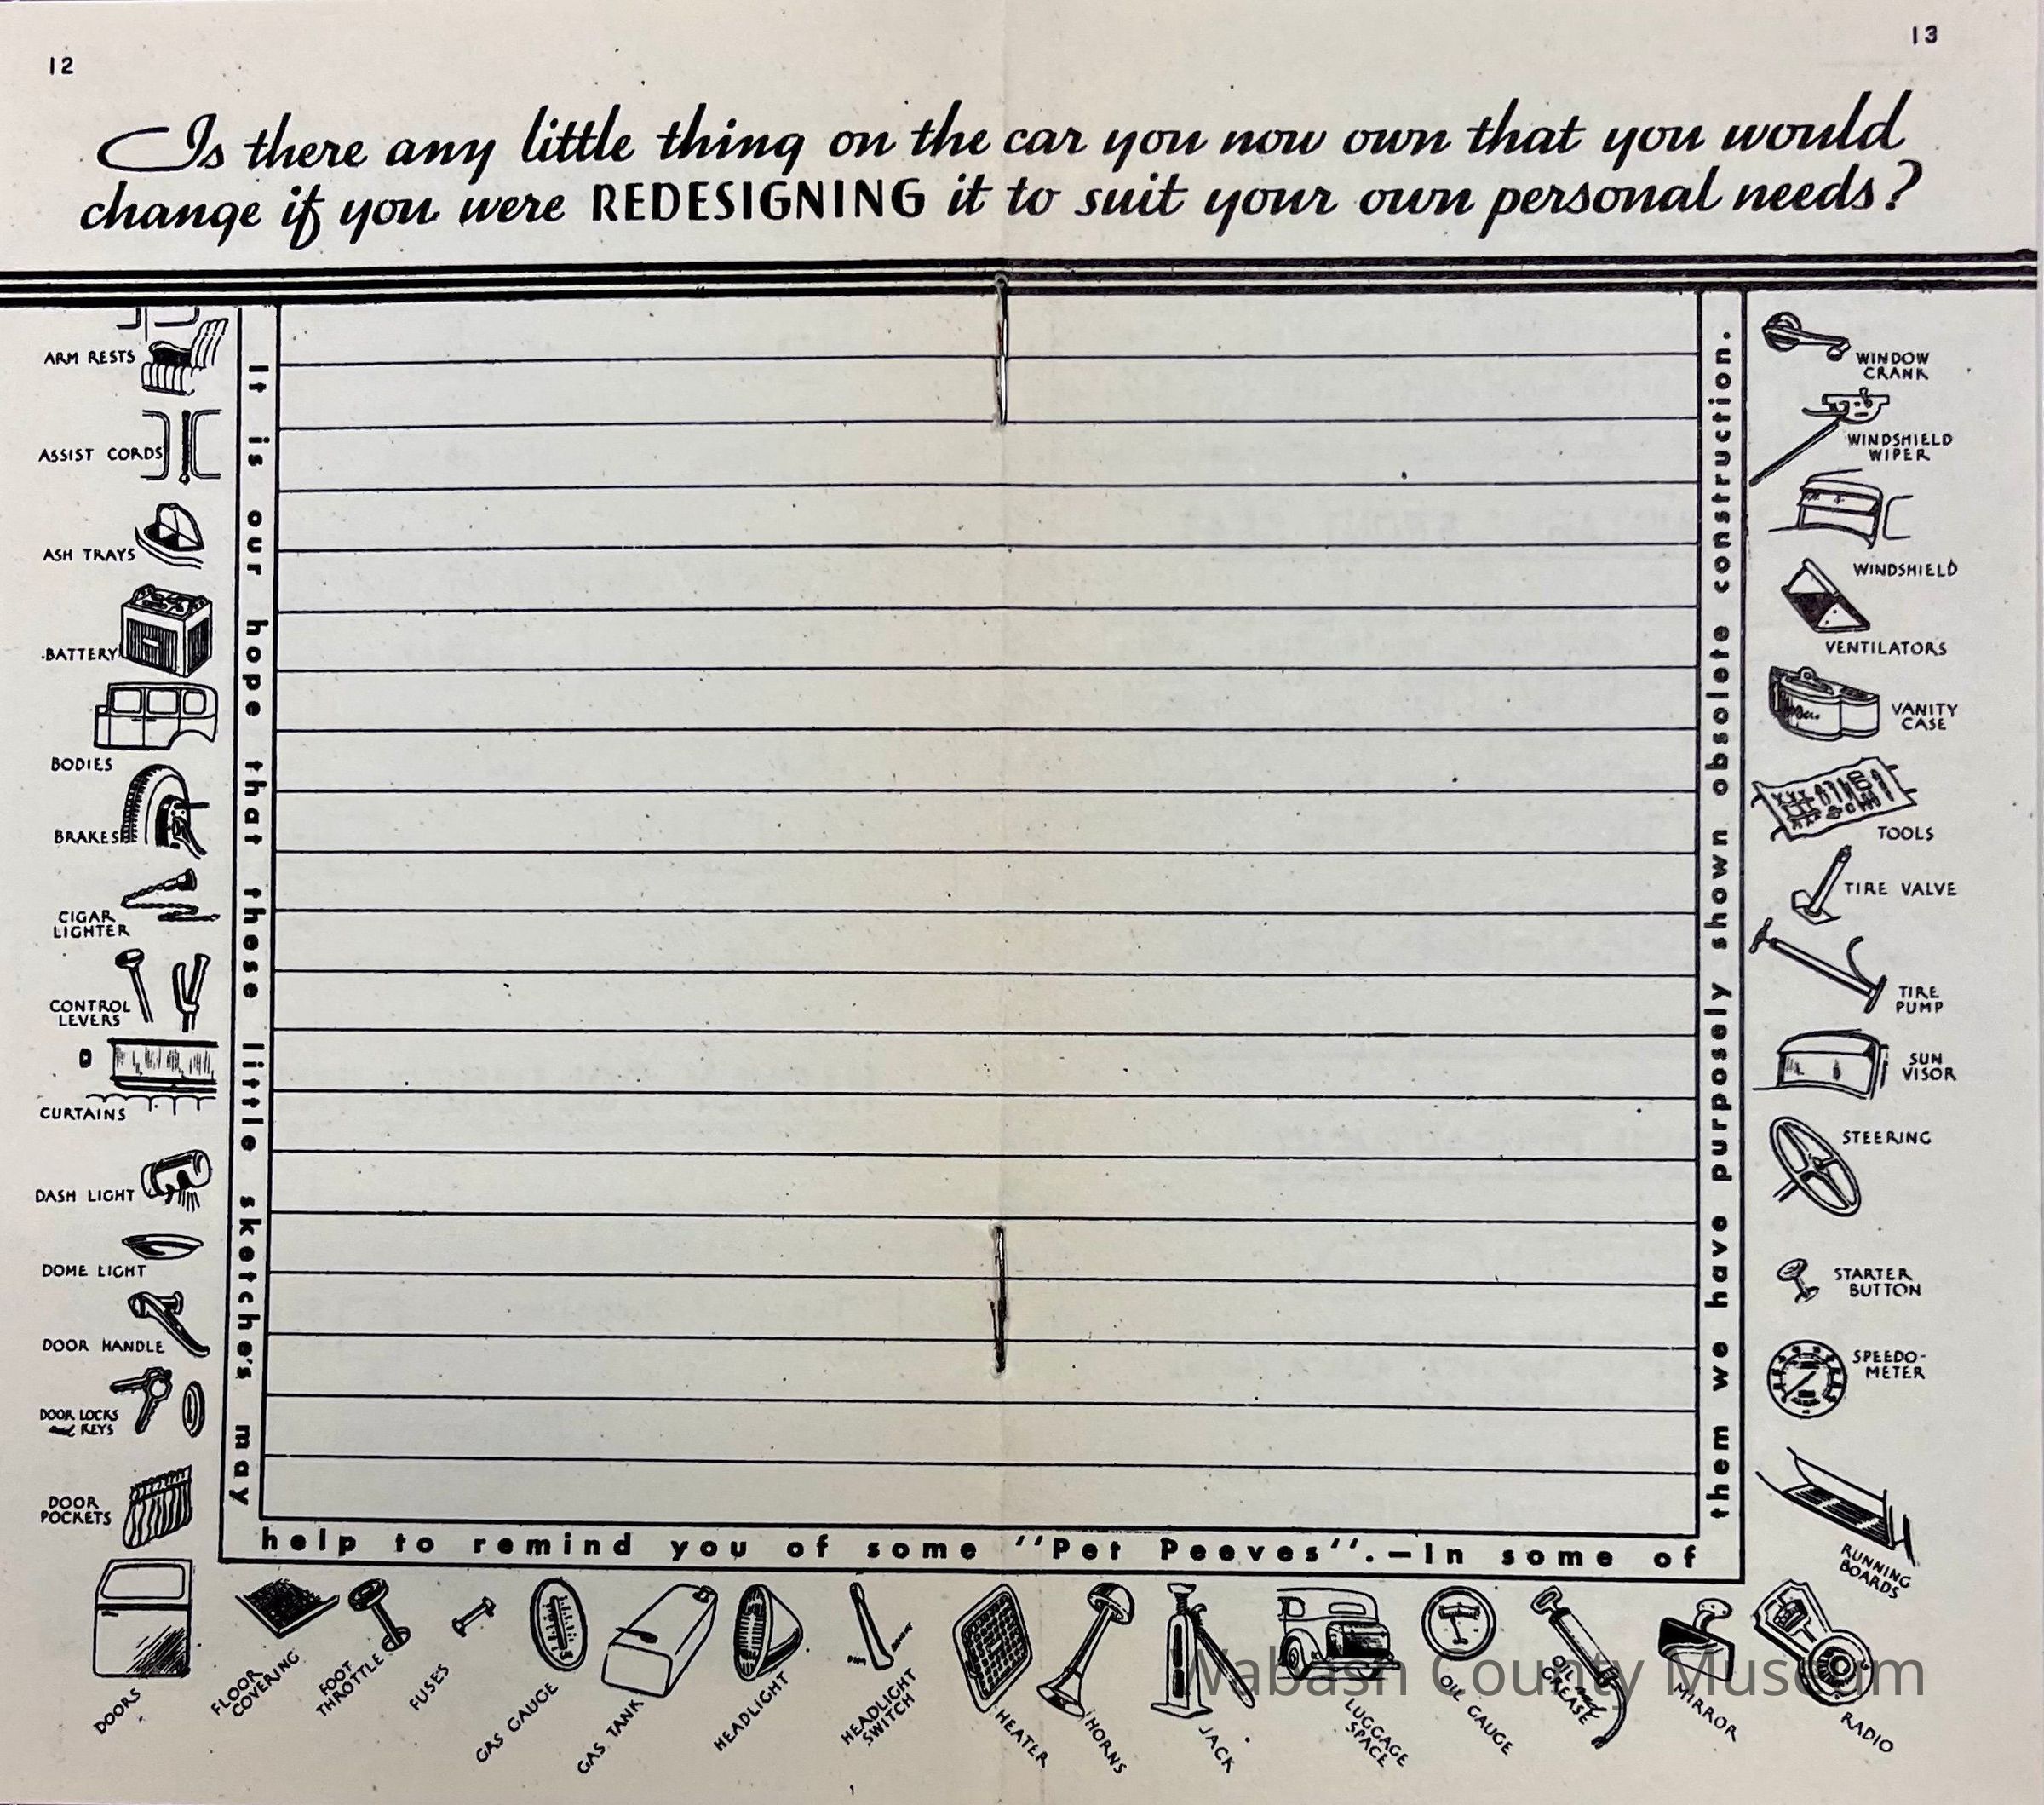 12
13
Is there any little thing on the car you now own that you would
change if you were REDESIGNING it to suit your own personal needs?
ARM RESTS
ASSIST CORDS
ASH TRAYS
BATTERY
BODIES
BRAKES
CIGAR
LIGHTER
CONTROL
LEVERS
CURTAINS
DASH LIGHT
DOME LIGHT
DOOR HANDLE
DOOR LOCKS
and KEYS
DOOR
POCKETS
It is our hope that these little sketche's may
help to remind you of some "Pet Peeves".—In some of
them we have purposely shown obsolete construction.
DOORS
FLOOR
COVERING
FOOT
THROTTLE
FUSES
GAS GAUGE
GAS TANK
HEADLIGHT
DIM
BRIGHT
HEADLIGHT
SWITCH
HEATER
HORNS
JACK
LUGGAGE
SPACE
OIL GAUGE
OIL and
GREASE
MIRROR
RADIO
WINDOW
CRANK
WINDSHIELD
WIPER
WINDSHIELD
VENTILATORS
VANITY
CASE
TOOLS
TIRE VALVE
TIRE
PUMP
SUN
VISOR
STEERING
STARTER
BUTTON
SPEEDO-
METER
RUNNING
BOARDS
Wabash County Museum